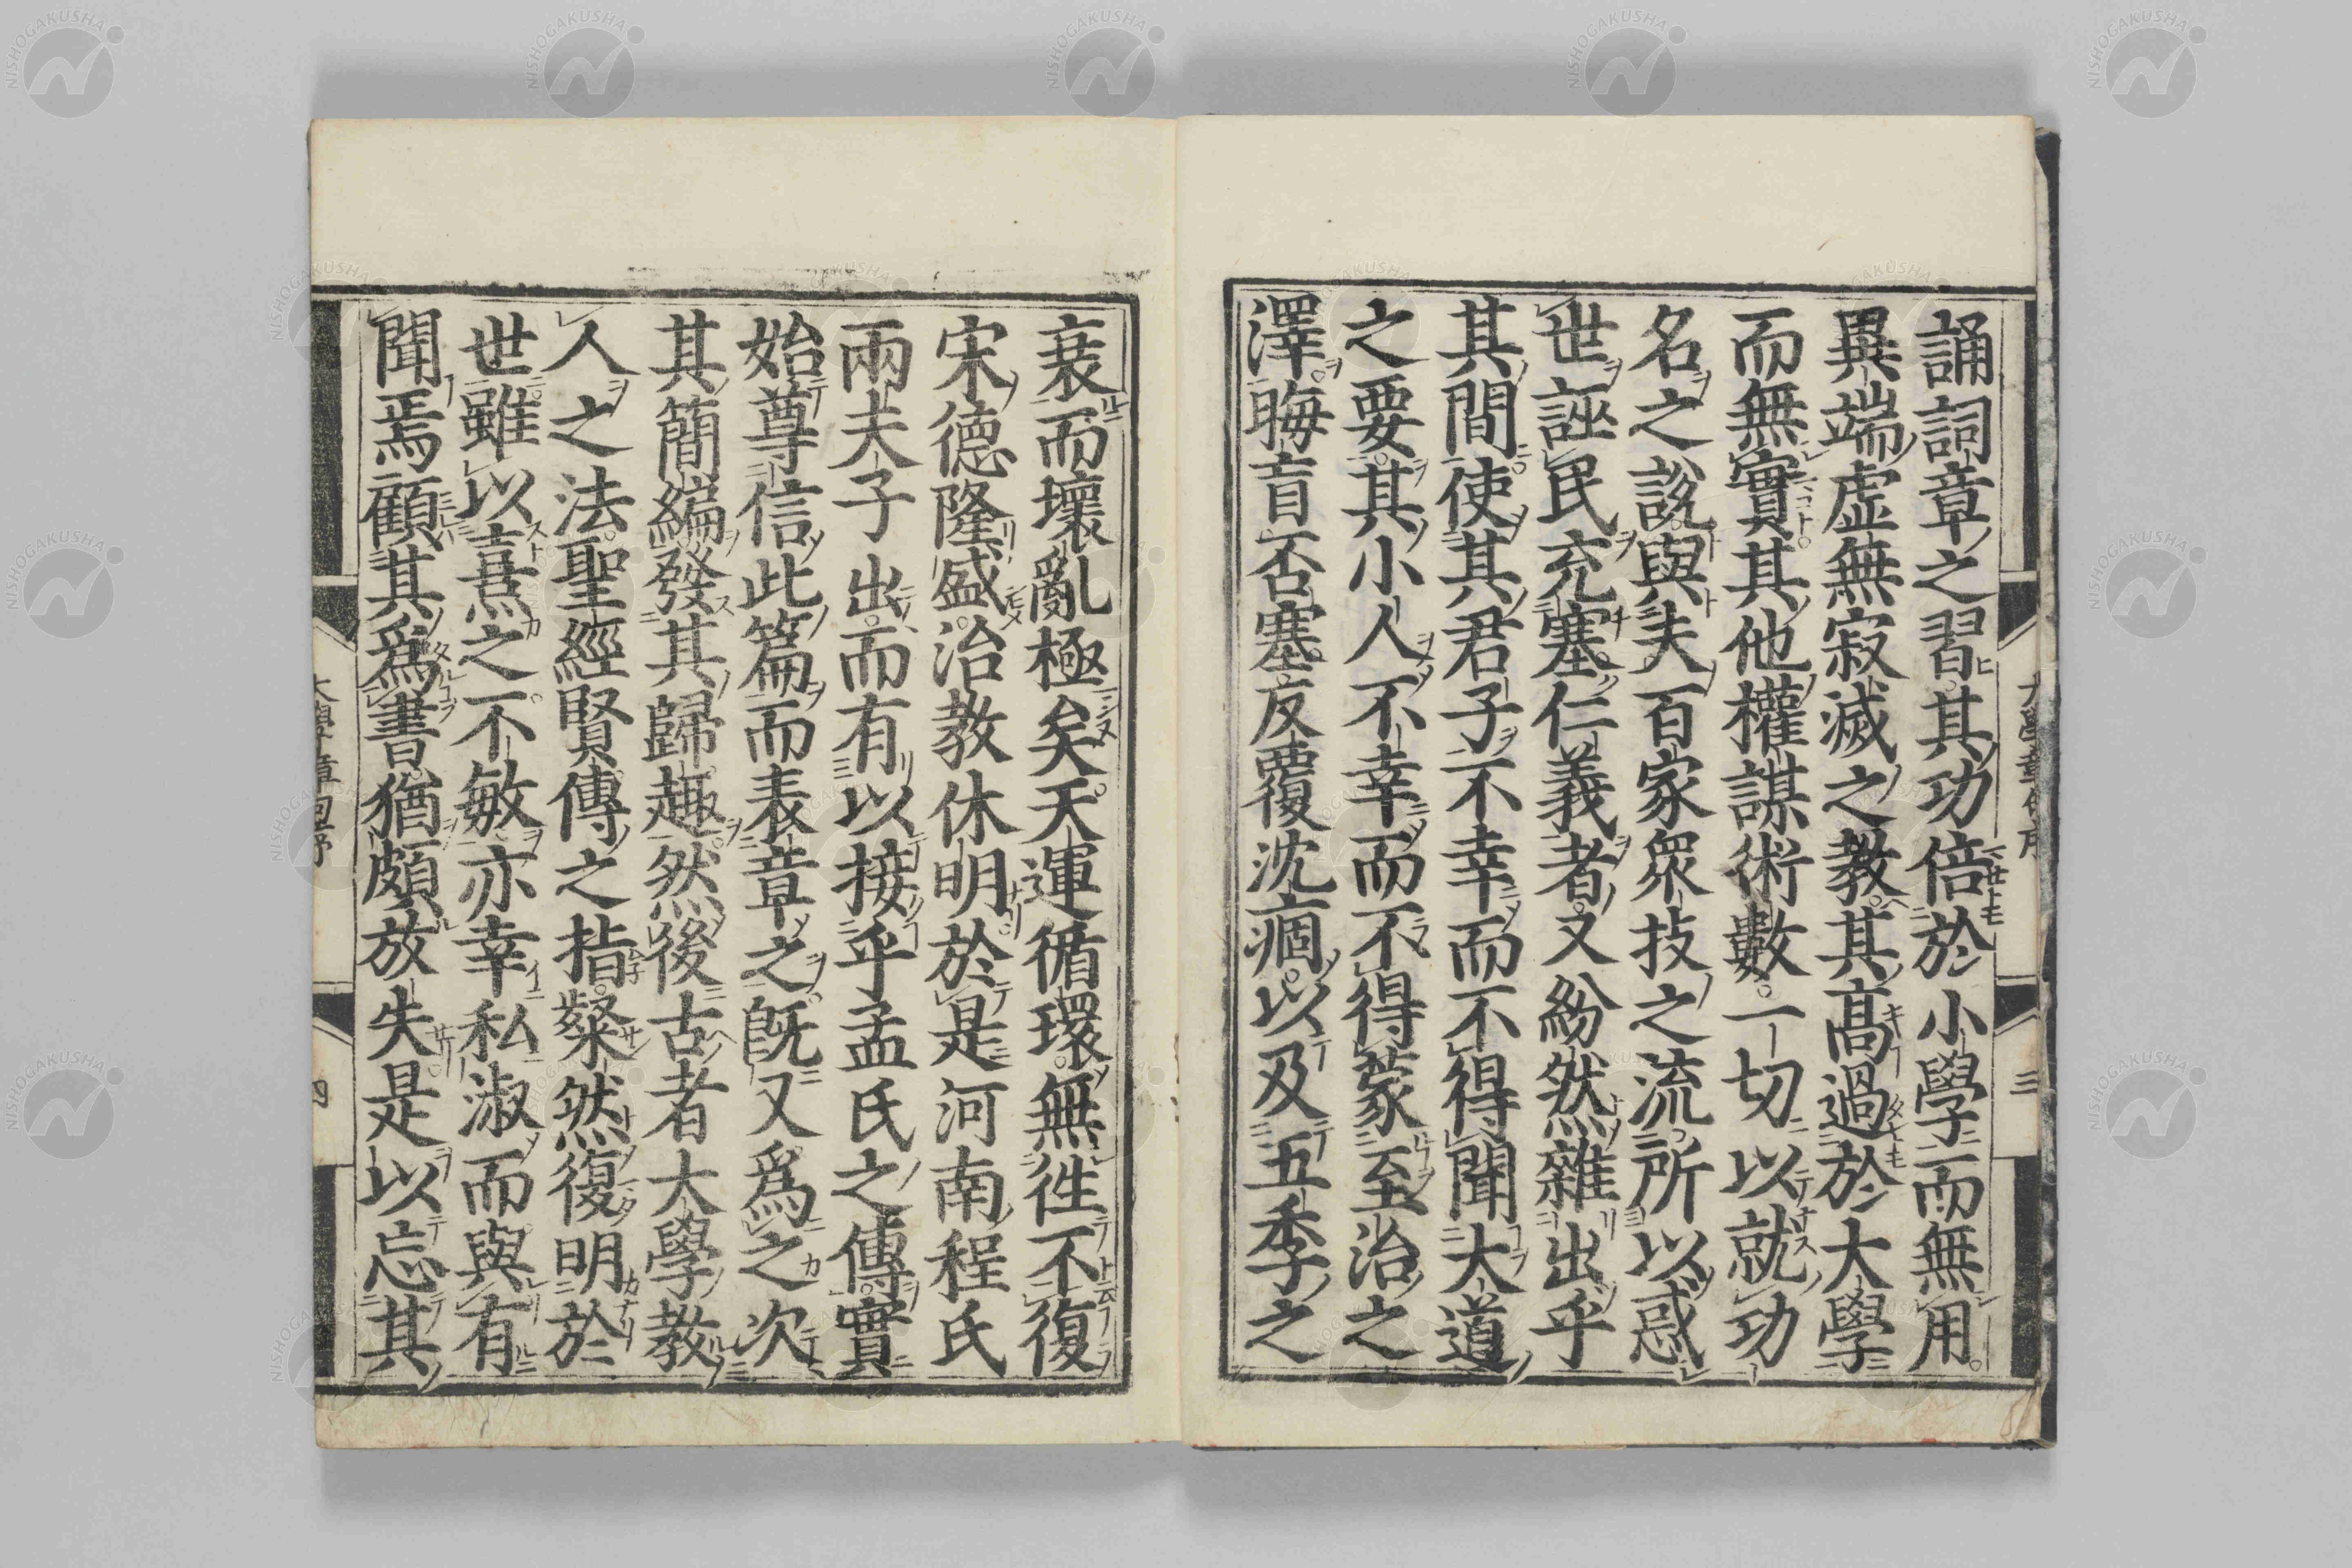 誦詞章之習其功倍於小學而無用
異端虛無寂滅之教其高過於大學
而無實其他權謀術數一切以就功
名之說與夫百家衆技之流所以惑
世誣民充塞仁義者又紛然雜出乎
其間使其君子不幸而不得聞大道
之要其小人不幸而不得蒙至治之
澤晦盲否塞反覆沈痼以及五季之
衰而壞亂極矣天運循環無徃不復
宋德隆盛治教休明於是河南程氏
兩夫子出而有以接乎孟氏之傳實
始尊信此篇而表章之旣又爲之次
其簡編發其歸趣然後古者大學教
人之法聖經賢傳之指粲然復明於
世雖以熹之不敏亦幸私淑而與有
聞焉顧其爲書猶頗放失是以忘其
大學章句序
NISHOGAKUSHA